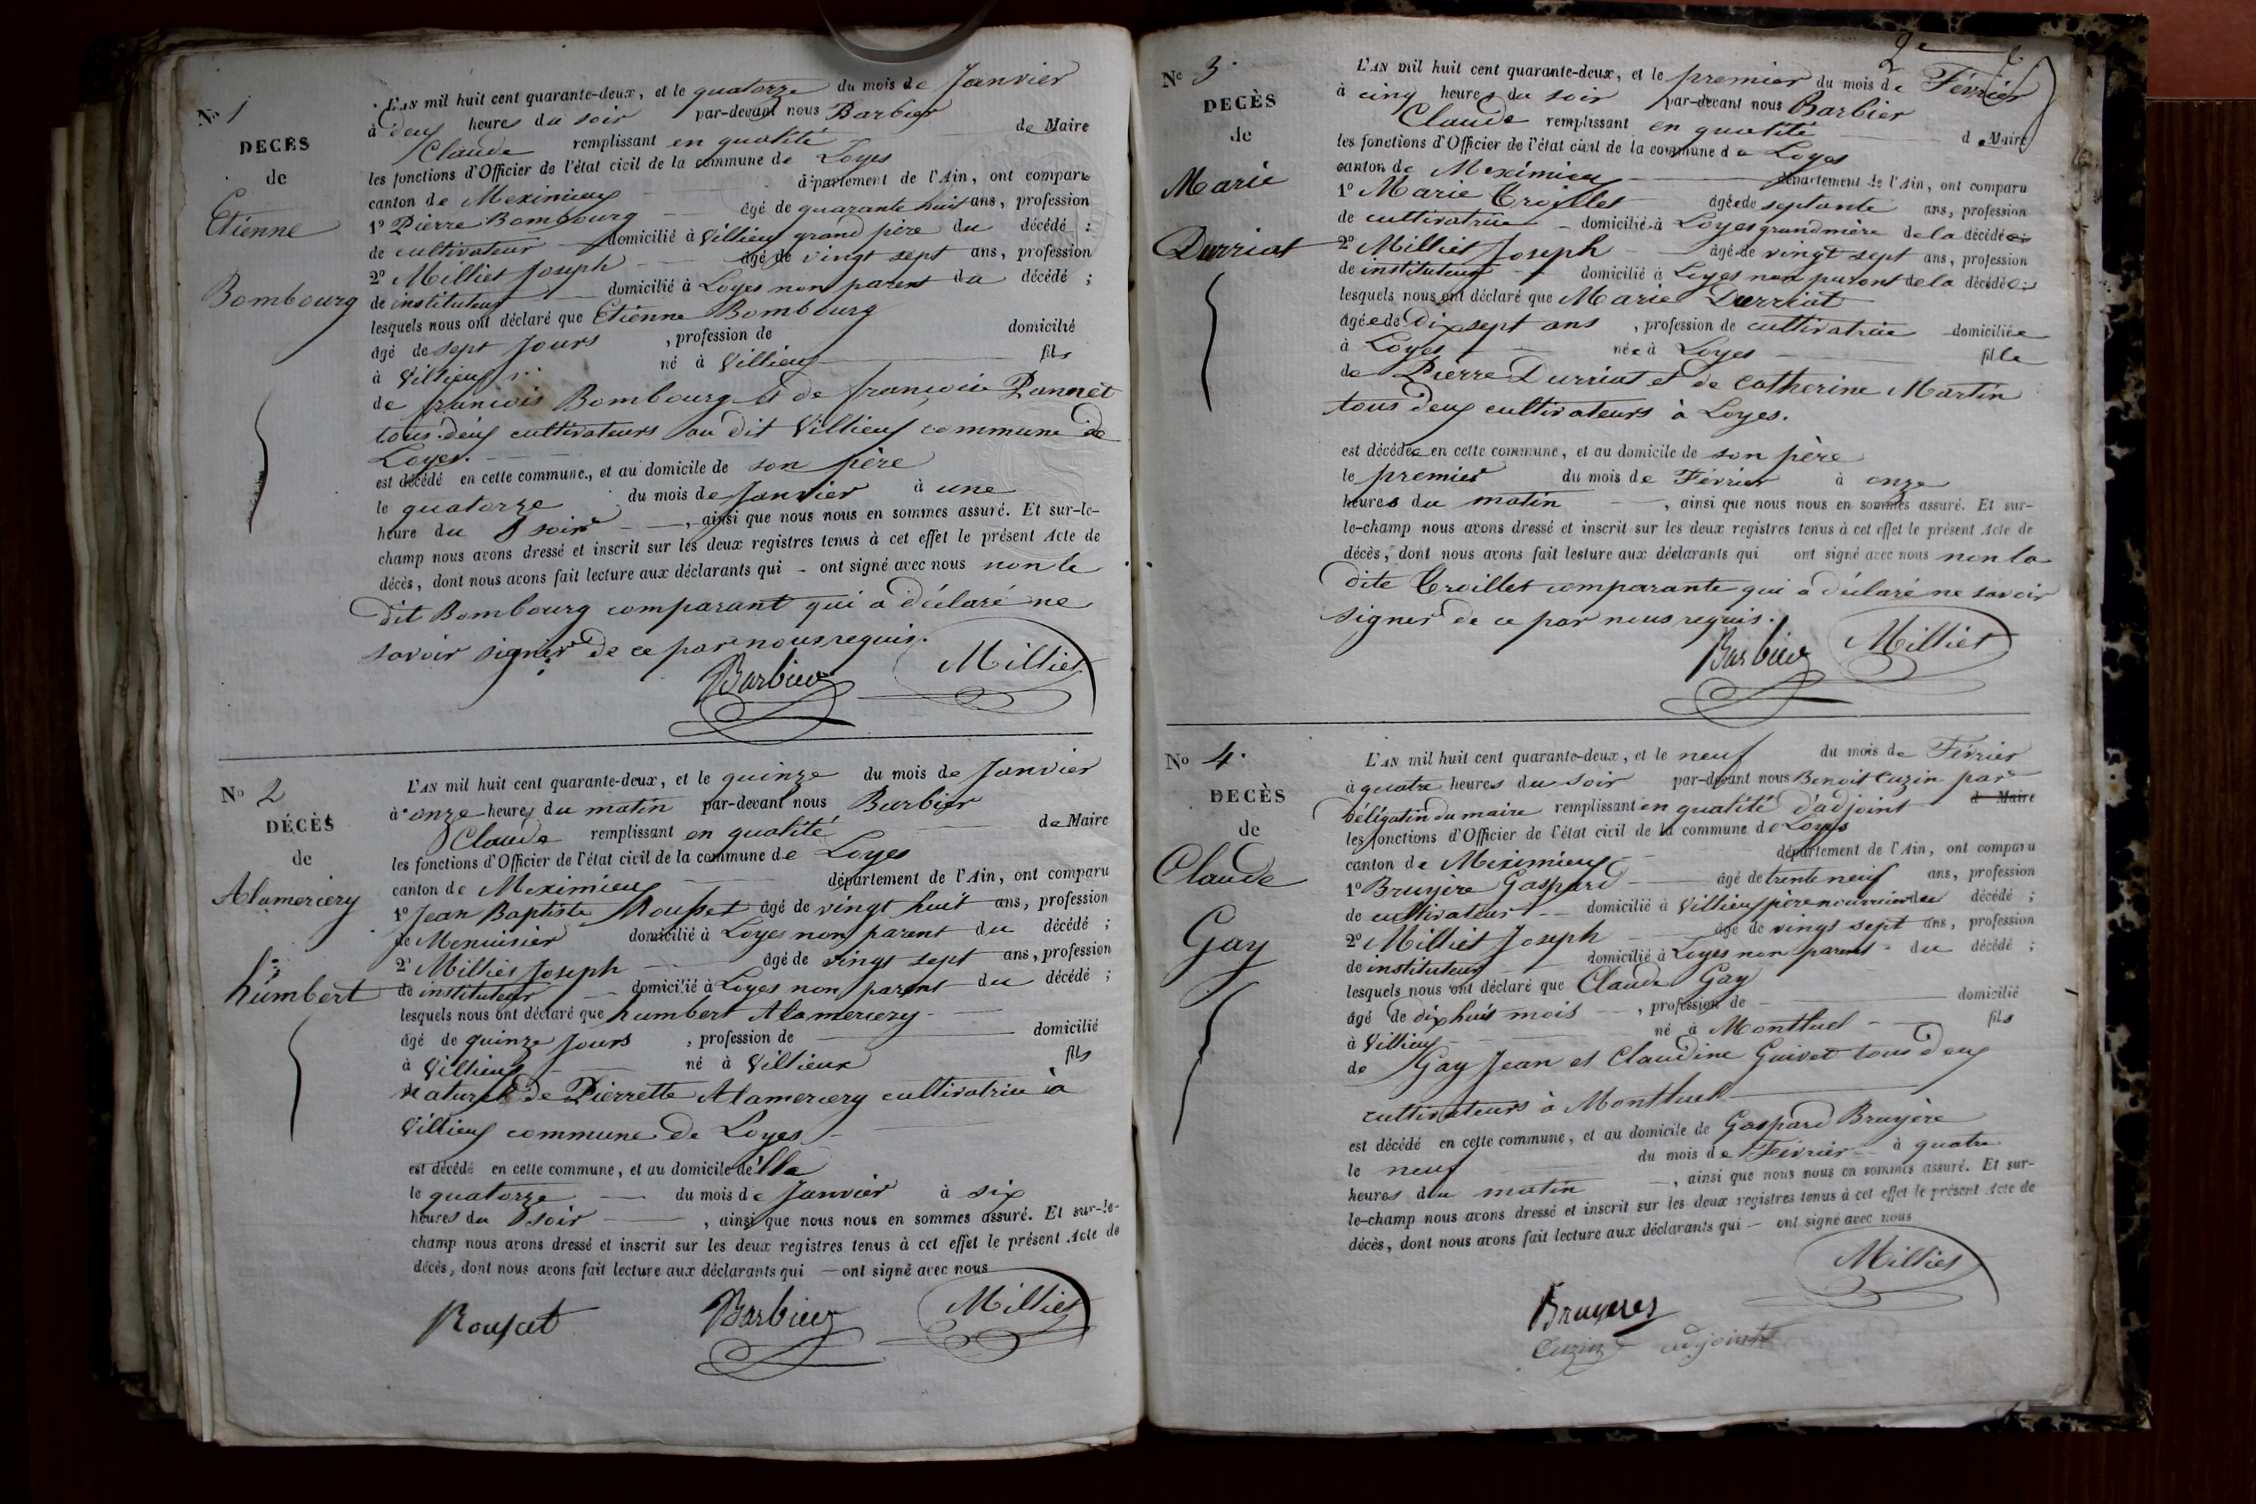 N° 1
DECÈS
de
Etienne
Bombourg
L'AN mil huit cent quarante-deux, et le quatorze du mois de Janvier
à deux heures du soir par-devant nous Barbier
Claude remplissant en qualité de Maire
les fonctions d'Officier de l'état civil de la commune de Loyes
canton de Meximieux département de l'Ain, ont comparu
1° Pierre Bombourg âgé de quarante huit ans, profession
de cultivateur domicilié à Villieux grand père du décédé ;
2° Milliet Joseph âgé de vingt sept ans, profession
de instituteur domicilié à Loyes non parent du décédé ;
lesquels nous ont déclaré que Etienne Bombourg
âgé de sept Jours , profession de domicilié
à Villieux né à Villieux fils
de françois Bombourg et de françoise Pannet
tous deux cultivateurs au dit Villieux commune de
Loyes.
est décédé en cette commune, et au domicile de son père
le quatorze du mois de Janvier à une
heure du soir , ainsi que nous nous en sommes assuré. Et sur-le-
champ nous avons dressé et inscrit sur les deux registres tenus à cet effet le présent Acte de
décès, dont nous avons fait lecture aux déclarants qui - ont signé avec nous non le
dit Bombourg comparant qui a déclaré ne
savoir signer de ce par nous requis.
Barbier Milliet
N° 2
DÉCÈS
de
Alamerciery
humbert
L'AN mil huit cent quarante-deux, et le quinze du mois de Janvier
à onze heures du matin par-devant nous Barbier
Claude remplissant en qualité de Maire
les fonctions d'Officier de l'état civil de la commune de Loyes
canton de Meximieux département de l'Ain, ont comparu
1° Jean Baptiste Rousset âgé de vingt huit ans, profession
de Menuisier domicilié à Loyes non parent du décédé ;
2° Milliet Joseph âgé de vingt sept ans, profession
de instituteur domicilié à Loyes non parent du décédé ;
lesquels nous ont déclaré que humbert Alamerciery
âgé de quinze Jours , profession de domicilié
à Villieux né à Villieux fils
naturel de Pierrette Alamerciery cultivatrice à
Villieux commune de Loyes
est décédé en cette commune, et au domicile d'Elle
le quatorze du mois de Janvier à six
heures du soir , ainsi que nous nous en sommes assuré. Et sur-le-
champ nous avons dressé et inscrit sur les deux registres tenus à cet effet le présent Acte de
décès, dont nous avons fait lecture aux déclarants qui — ont signé avec nous
Rousset Barbier Milliet
2e
N° 3.
DECÈS
de
Marie
Durriat
L'AN mil huit cent quarante-deux, et le premier du mois de Février
à cinq heures du soir par-devant nous Barbier
Claude remplissant en qualité de Maire
les fonctions d'Officier de l'état civil de la commune de Loyes
canton de Meximieux département de l'Ain, ont comparu
1° Marie Croillet âgée de septante ans, profession
de cultivatrice domicilié à Loyes grandmère de la décédée
2° Milliet Joseph âgé de vingt sept ans, profession
de instituteur domicilié à Loyes non parent de la décédée ;
lesquels nous ont déclaré que Marie Durriat
âgée de Dix sept ans , profession de cultivatrice domiciliée
à Loyes née à Loyes fille
de Pierre Durriat et de Catherine Martin
tous deux cultivateurs à Loyes.
est décédée en cette commune, et au domicile de son père
le premier du mois de Février à onze
heures du matin , ainsi que nous nous en sommes assuré. Et sur-
le-champ nous avons dressé et inscrit sur les deux registres tenus à cet effet le présent Acte de
décès, dont nous avons fait lecture aux déclarants qui ont signé avec nous non la
dite Croillet comparante qui a déclaré ne savoir
signer de ce par nous requis.
Barbier Milliet
N° 4.
DECÈS
de
Claude
Gay
L'AN mil huit cent quarante-deux, et le neuf du mois de Février
à quatre heures du soir par-devant nous Benoit Cuzin par
Délégation du maire remplissant en qualité d'adjoint d Maire
les fonctions d'Officier de l'état civil de la commune de Loyes
canton de Meximieux département de l'Ain, ont comparu
1° Bruyère Gaspard âgé de trente neuf ans, profession
de cultivateur domicilié à Villieux père nourricier du décédé ;
2° Milliet Joseph âgé de vingt sept ans, profession
de instituteur domicilié à Loyes non parent du décédé ;
lesquels nous ont déclaré que Claude Gay
âgé de dix huit mois , profession de domicilié
à Villieux né à Montluel fils
de Gay Jean et Claudine Guivet tous deux
cultivateurs à Montluel
est décédé en cette commune, et au domicile de Gaspard Bruyère
le neuf du mois de Février à quatre
heures du matin , ainsi que nous nous en sommes assuré. Et sur-
le-champ nous avons dressé et inscrit sur les deux registres tenus à cet effet le présent Acte de
décès, dont nous avons fait lecture aux déclarants qui — ont signé avec nous
Milliet
Bruyeres
Cuzin adjoint